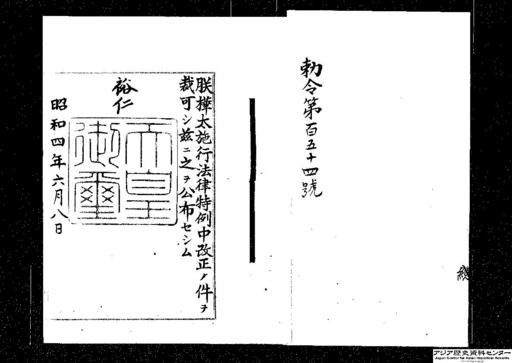 勅令第百五十四號
朕樺太施行法律特例中改正ノ件ヲ
裁可シ玆ニ之ヲ公布セシム
裕仁
天皇
御璽
昭和四年六月八日
アジア歴史資料センター
Japan Center for Asian Historical Records